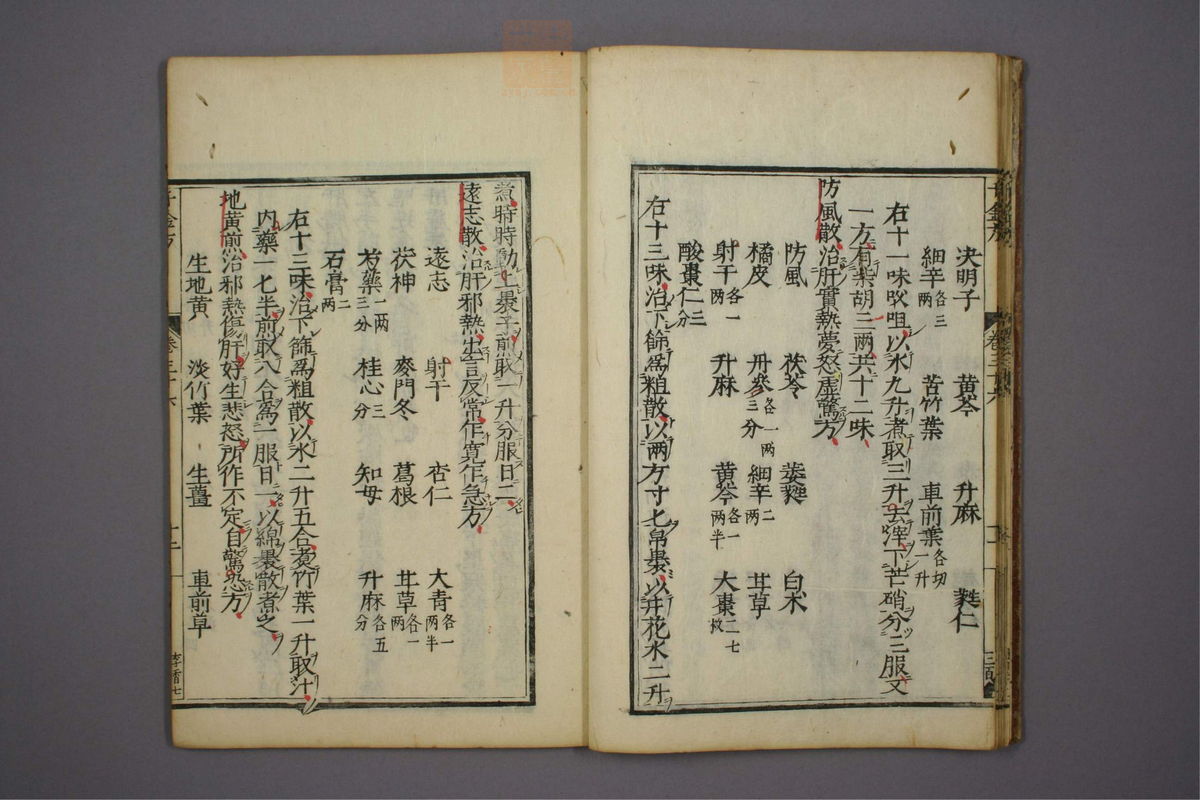 决明子　黄芩　升麻　蕤仁
細辛各三两　苦竹葉　車前葉各切一升
右十一味㕮咀以水九升煮取三升去滓下芒硝分三服又
一方有柴胡三两共十二味
防風散治肝實熱夢怒虚驚方
防風　茯苓　萎蕤　白术
橘皮　丹參各一两三分　細辛二两　甘草
射干各一两　升麻　黄芩各一两半　大棗二七枚
酸棗仁三分
右十三味治下篩爲粗散以两方寸匕帛裹以井花水二升
煮時時動上裹子煎取一升分服日二
遠志散治肝邪熱出言反常作寛作急方
遠志　射干　杏仁　大青各一两半
茯神　麥門冬　葛根　甘草各一两
芍藥一两三分　桂心三分　知母　升麻各五分
石膏二两
右十三味治下篩爲粗散以水二升五合煮竹葉一升取汁
内藥一匕半煎取八合爲一服日一以綿裹散煮之
地黄煎治邪熱傷肝好生悲怒所作不定自驚恐方
生地黄　淡竹葉　生薑　車前草
卷三十六